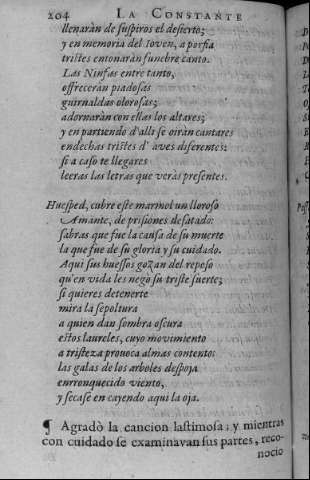 204 LA CONSTANTE
llenaràn de suspiros el desierto;
y en memoria del Ioven, a porfia
tristes entonaràn funebre canto.
Las Ninfas entre tanto,
ofreceràn piadosas
guirnaldas olorosas;
adornaràn con ellas los altares;
y en partiendo d'alli se oiràn cantares
endechas tristes d' aves diferentes:
si a caso te llegares
leeras las letras que veràs presentes.
Huesped, cubre este marmol un lloroso
Amante, de prisiones desatado:
sabras que fue la causa de su muerte
la que fue de su gloria y su cuidado.
Aqui sus huessos gozan del reposo
qu'en vida les negò su triste suerte;
si quieres detenerte
mira la sepoltura
a quien dan sombra oscura
estos laureles, cuyo movimiento
a tristeza provoca almas contento:
las galas de los arboles despoja
enrronquecido viento,
y secase en cayendo aqui la oja.
¶ Agradò la cancion lastimosa; y mientras
con cuidado se examinavan sus partes, reco-
nocio